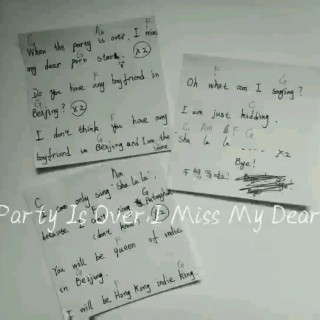 C Am F
When the party is over, I miss
G
my dear porn star. x2
F
Do you have any boyfriend in
G
Beijing? x2
I don't think you have any
boyfriend in Beijing and I am the same
F G
Oh what am I singing?
C
I am just kidding.
C Am F G
Sha la la ... x2
Bye!
C Am
I can only sing "sha la la",
G
because I can't sing
I don't know x2
F
You will be queen of indie
G
in Beijing.
I will be Hong Kong indie king.
Party Is Over,I Miss My Dear